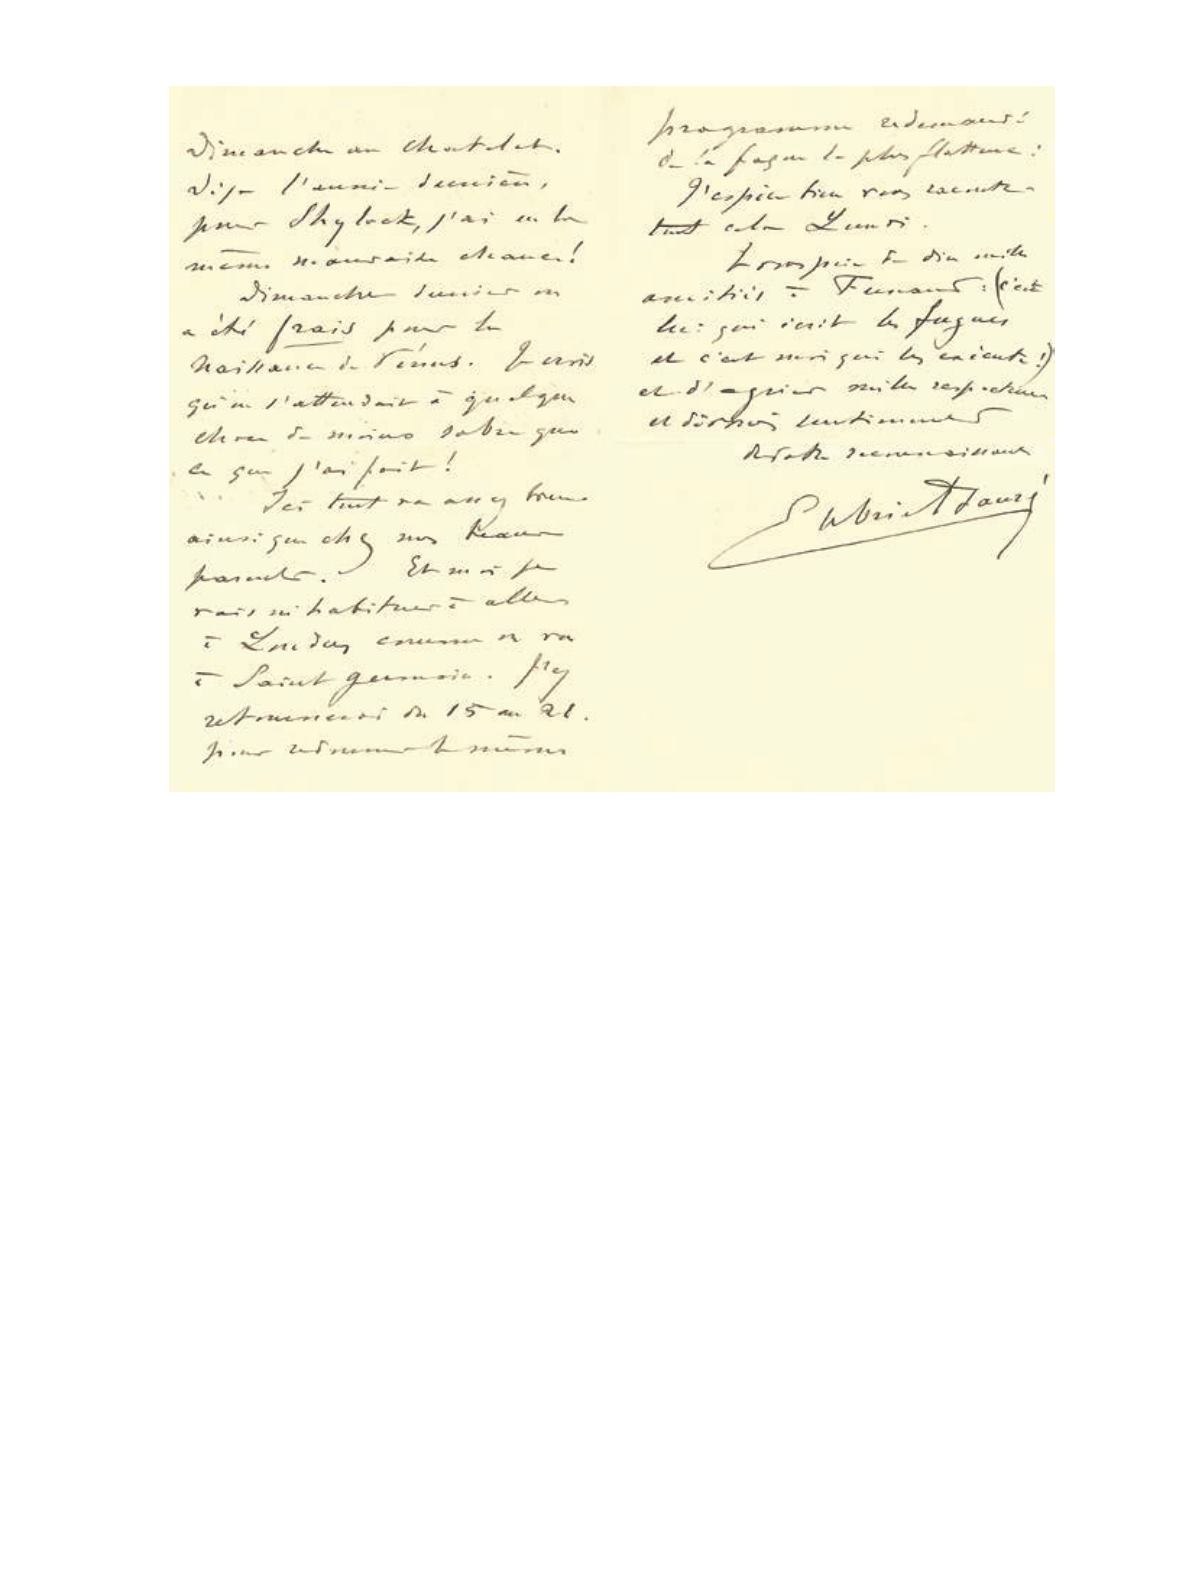 Dimanche au Chatelet.
Déjà l'année dernière,
pour Shylock, j'ai eu la
même mauvaise chance!
Dimanche dernier on
a été frais pour la
Naissance de Vénus. Je crois
qu'on s'attendait à quelque
chose de moins sobre que
ce que j'ai fait!
Ici tout va assez bien
ainsi que chez nos beaux
parents. Et moi je
vais m'habituer à aller
à Londres comme on va
à Saint Germain. J'y
retournerai du 15 au 21.
pour redonner le même
programme redemandé
de la façon la plus flatteuse:
J'espère bien vous raconter
tout cela Lundi.
Je vous prie de dire mille
amitiés à Fernand: (c'est
lui qui écrit les fugues
et c'est moi qui les exécute!)
et d'agréer mille respectueux
et dévoués sentiments
de votre reconnaissant
Gabriel Fauré